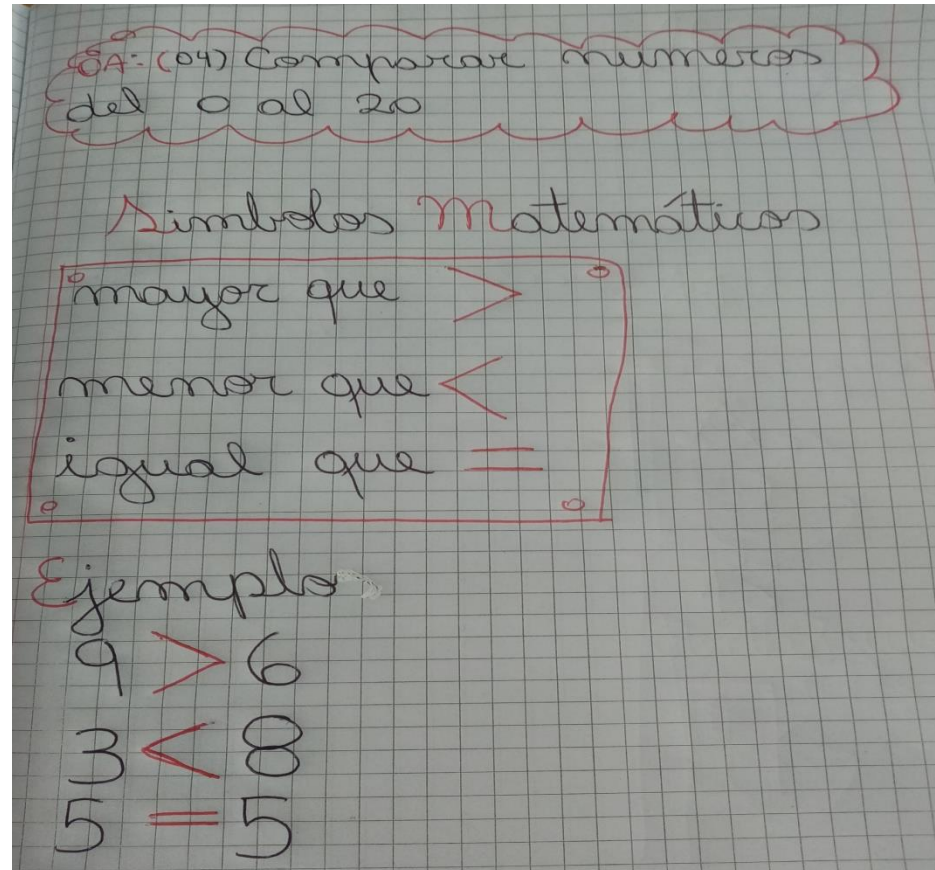 OA: (04) Comparar números
del 0 al 20
Simbolos Matemáticos
mayor que >
menor que <
igual que =
Ejemplo
9 > 6
3 < 8
5 = 5